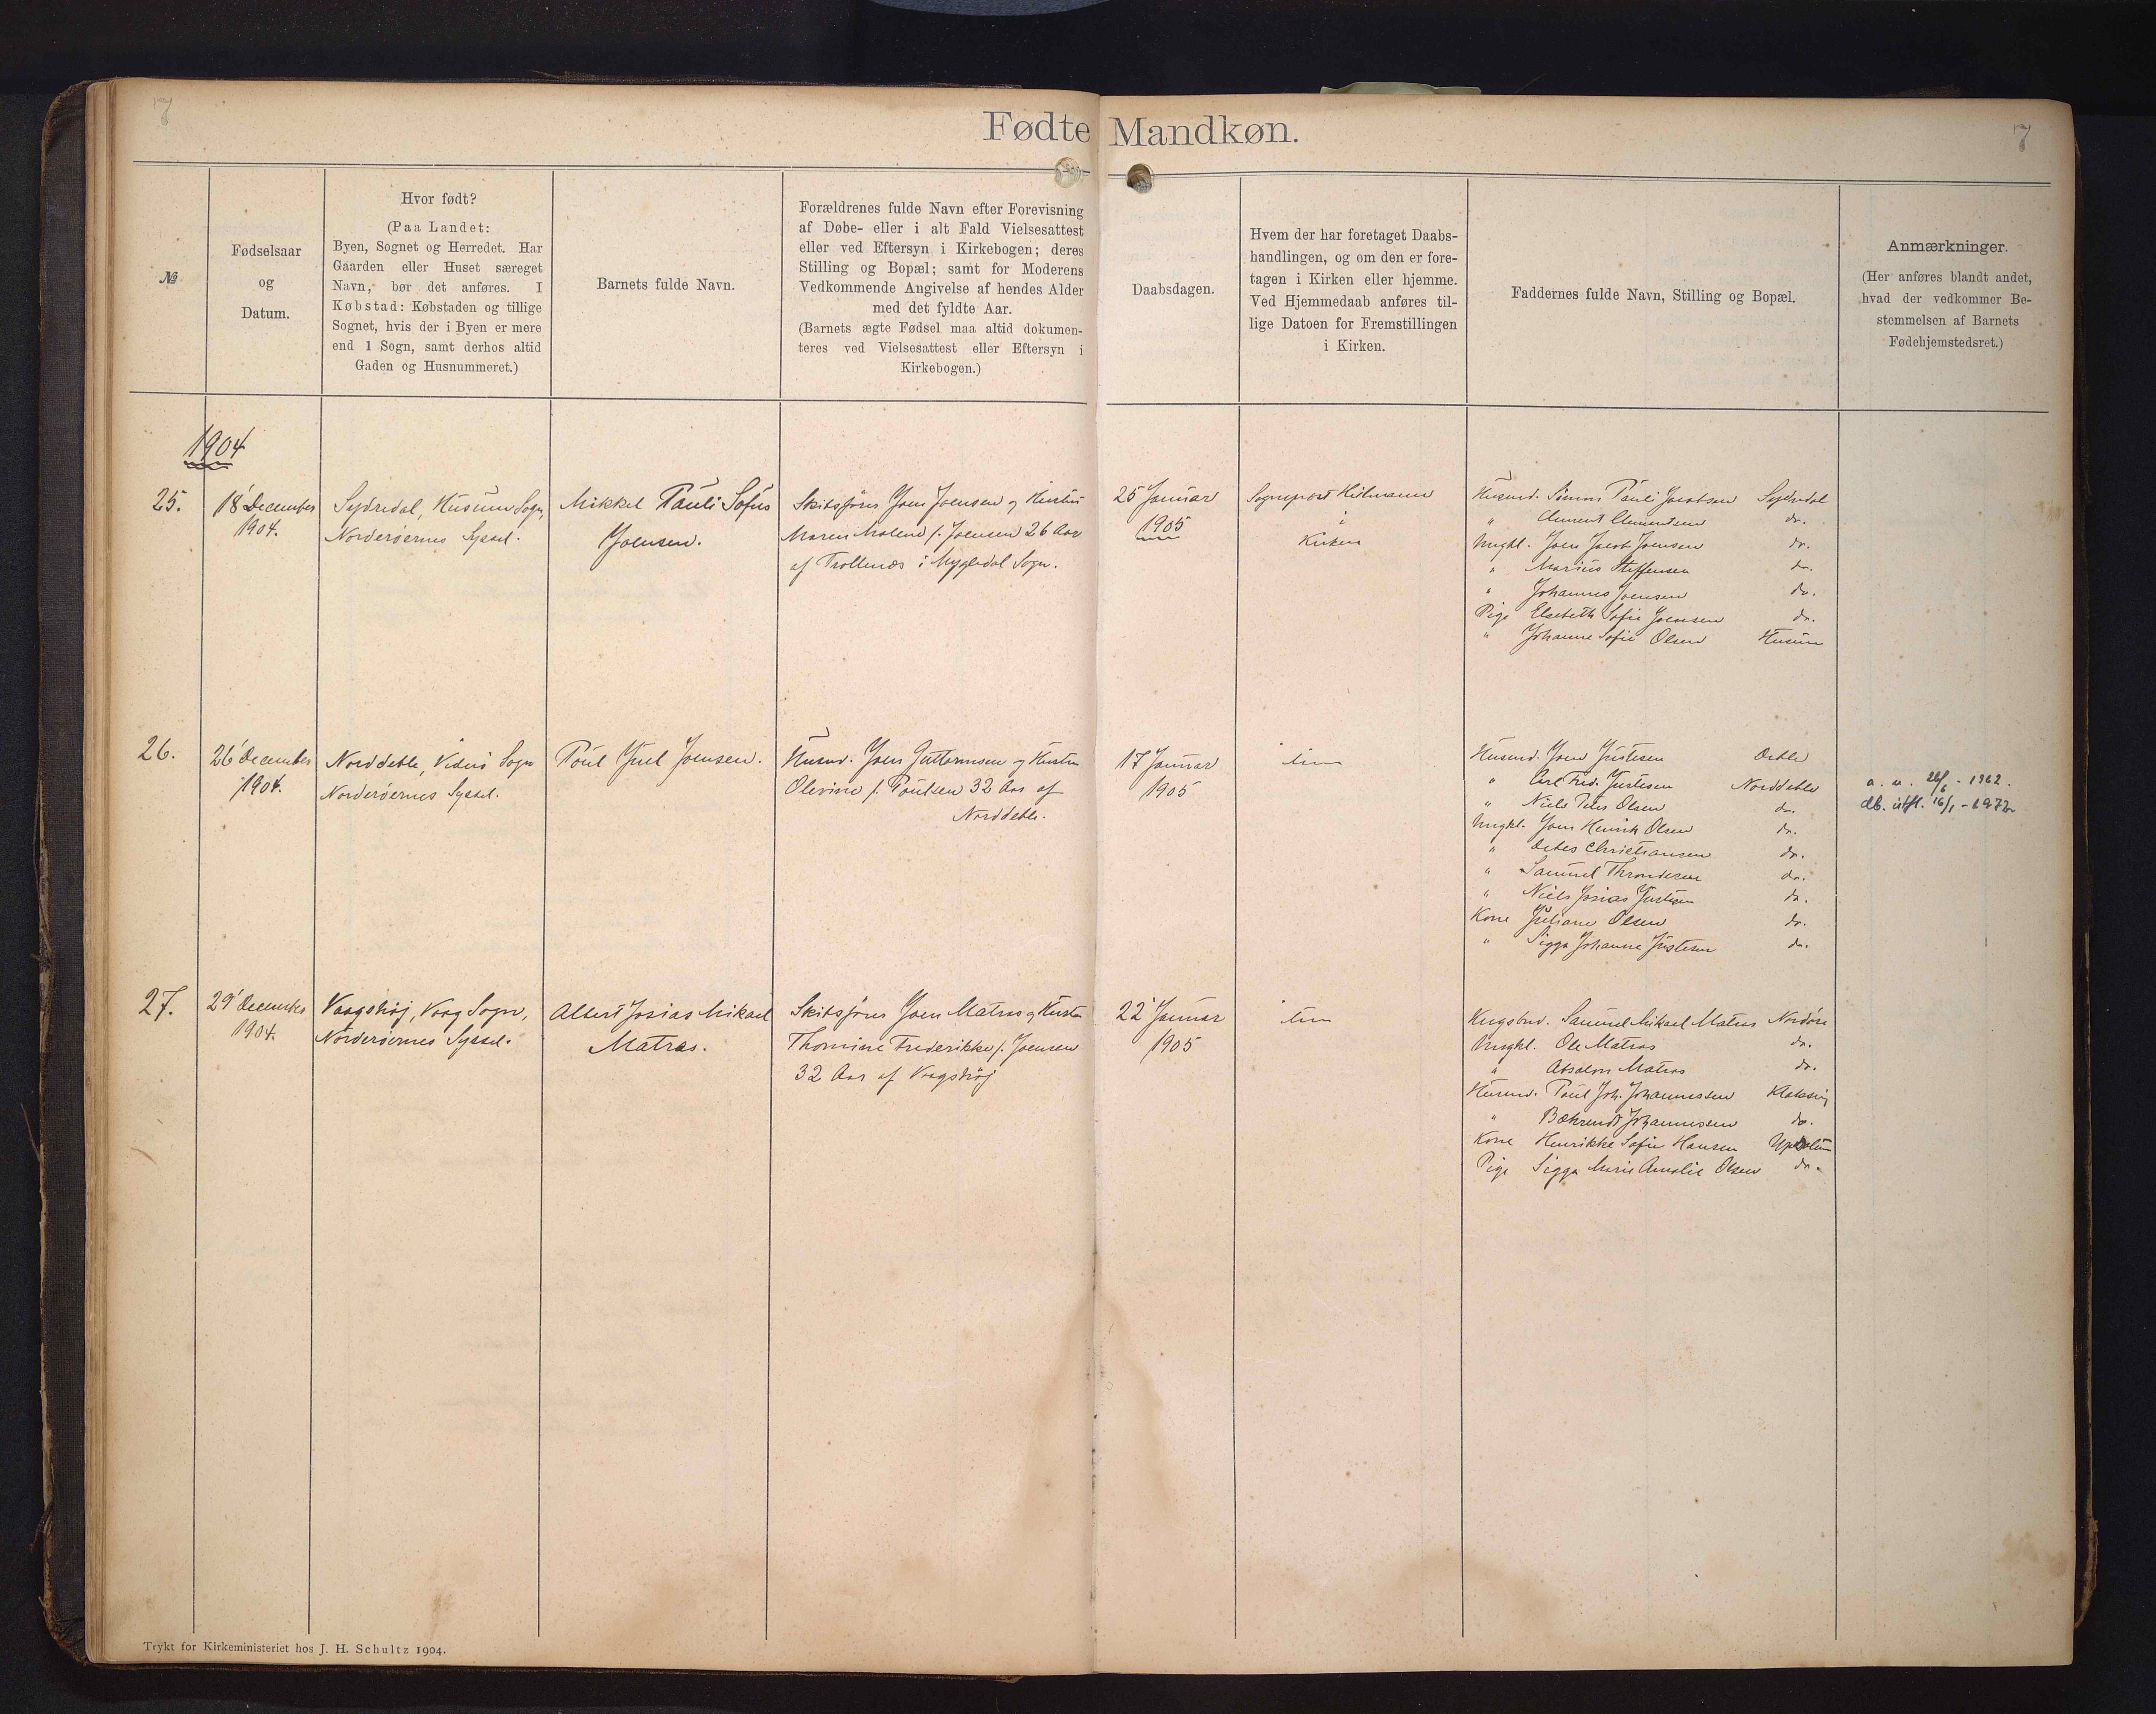 7
Fødte Mandkøn.
7
№
Fødselsaar
og
Datum.
Hvor født?
(Paa Landet:
Byen, Sognet og Herredet. Har
Gaarden eller Huset særeget
Navn, bør det anføres. I
Købstad: Købstaden og tillige
Sognet, hvis der i Byen er mere
end 1 Sogn, samt derhos altid
Gaden og Husnummeret.)
Barnets fulde Navn.
Forældrenes fulde Navn efter Forevisning
af Døbe- eller i alt Fald Vielsesattest
eller ved Eftersyn i Kirkebogen; deres
Stilling og Bopæl; samt for Moderens
Vedkommende Angivelse af hendes Alder
med det fyldte Aar.
(Barnets ægte Fødsel maa altid dokumen-
teres ved Vielsesattest eller Eftersyn i
Kirkebogen.)
Daabsdagen.
Hvem der har foretaget Daabs-
handlingen, og om den er fore-
tagen i Kirken eller hjemme.
Ved Hjemmedaab anføres til-
lige Datoen for Fremstillingen
i Kirken.
Faddernes fulde Navn, Stilling og Bopæl.
Anmærkninger.
(Her anføres blandt andet,
hvad der vedkommer Be-
stemmelsen af Barnets
Fødehjemstedsret.)
1904
25.
18 December
1904.
Sydredal, Husum Sogn,
Norderøernes Syssel.
Mikkel Pauli Sofus
Joensen.
Skibsfører Joen Joensen og Hustru
Maren Malene f. Joensen 26 Aar
af Trollenæs i Mygledal Sogn.
25 Januar
1905
Sognepræst
i
Kirken
Husmd. Simon Pauli Jacobsen Sydredal
" Clement Clementsen do.
Ungkl. Joen Jacob Joensen do.
" Marius Steffensen do.
" Johannes Joensen do.
Pige Elsebeth Sofie Joensen do.
" Johanne Sofie Olsen Husum
26.
26 December
1904.
Norddeble, Viderø Sogn
Norderøernes Syssel.
Poul Juel Joensen.
Husmd. Joen Guttormsen og Hustru
Olevine f. Poulsen 32 Aar af
Norddeble.
17 Januar
1905
Husmd. Joen Justesen
" Carl Fred. Justesen Norddeble
" Niels Peter Olsen do.
Ungkl. Joen Henrik Olsen do.
" Debes Christiansen do.
" Samuel Throndesen do.
" Niels Josias Justesen do.
Kone Juliane Olsen do.
" Sigga Johanne Justesen do.
a. u. 26/6 - 1962.
db. udst. 16/1 - 1972
27.
29 December
1904.
Vaagshøj, Vaag Sogn,
Norderøernes Syssel.
Albert Josias Mikael
Matras.
Skibsfører Joen Matras og Hustru
Thomine Frederikke f. Joensen
32 Aar af Vaagshøj
22 Januar
1905
Kngsbd. Samuel Mikael Matras Nordøre
Ungkl. Ole Matras do.
" Absalon Matras do.
Husmd. Poul Joh. Johannessen Klaksvig
" Bæhrendt Johannessen do.
Kone Henrikke Sofie Hansen
Pige Sigga Marie Amalie Olsen do.
Trykt for Kirkeministeriet hos J. H. Schultz 1904.